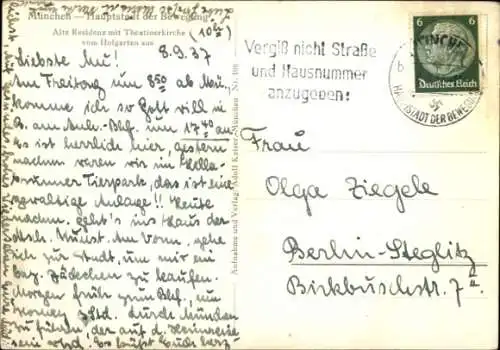 München — Hauptstadt der Bewegung
Alte Residenz mit Theatinerkirche
vom Hofgarten aus
(10h)
8.9.37
Liebste Mu!
Am Freitag um 8 50 ab Mü.
komme ich so Gott will in
B. am Anh. Bhf. um 17 40 an.
Es ist herrlich hier, gestern
nachm. waren wir im Hella-
brunner Tierpark, das ist eine
gewaltige Anlage!! Heute
nachm. geht's ins Haus der
dtsch. Kunst. Am Vorm. gehe
ich zur Stadt, um mir ein
zu kaufen.
Morgen früh zum Bhf., um
durch München
zu führen, der auf d. Heimreise
sein wird. Es küßt Euch herz-
Aufnahme und Verlag: Adolf Kaiser, München Nr. 108
Vergiß nicht Straße
und Hausnummer
anzugeben!
6 6
Deutsches Reich
MÜNCHEN
HAUPTSTADT DER BEWEGUNG
Frau
Olga Ziegele
Berlin-Steglitz
Birkbuschstr. 7 II.